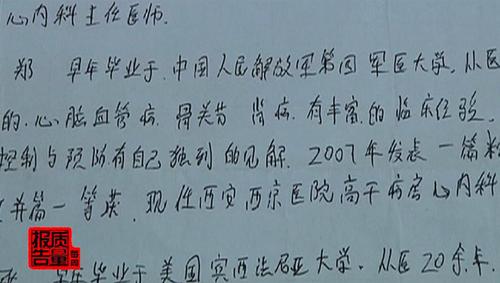 心内科主任医师.
郑 早年毕业于.中国人民解放军第四军医大学.从医
的.心.脑血管病.骨关节 肾病.有丰富的临床经验.
控制与预防有自己独到的见解. 2007年发表一篇
并篇一等奖.现任西安西京医院高干病房心内科
报告质量
早年毕业于美国宾西法尼亚大学.从医20余年.